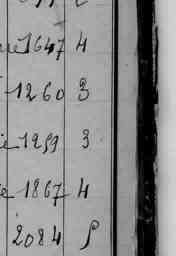 1647 4
1260 3
1259 3
1867 4
2084